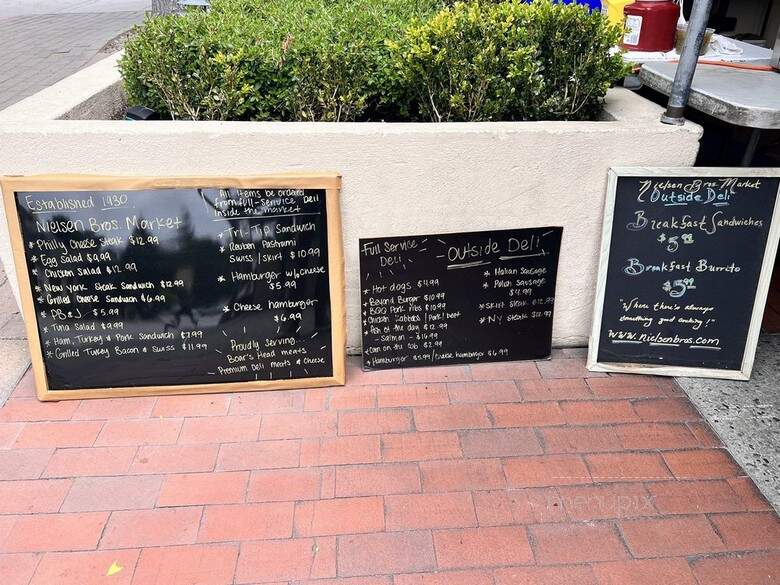 Established 1930
Nielsen Bros. Market
* Philly Cheese Steak $12.99
* Egg Salad $9.99
* Chicken Salad $12.99
* New York Steak Sandwich $12.99
* Grilled Cheese Sandwich $6.99
* PB & J $5.99
* Tuna Salad $9.99
* Ham, Turkey & Pork Sandwich $7.99
* Grilled Turkey Bacon & Swiss $11.99
All items be ordered
from full-service Deli
inside the market
* Tri-Tip Sandwich
* Reuben Pastrami
Swiss/Skirt $10.99
* Hamburger w/cheese
$5.99
* Cheese hamburger
$6.99
Proudly Serving
Boar's Head meats
Premium Deli Meats & Cheese
Full Service
Deli
Outside Deli
* Hot dogs $4.99
* Beyond Burger $10.99
* BBQ Pork Ribs $10.99
* Chicken Kabbobs / Pork / beef
* Fish of the day $12.99
- Salmon - $16.99
* Corn on the cob $2.99
* Hamburger $5.99 / Cheese hamburger $6.99
* Italian Sausage
* Polish Sausage
$4.99
* Skirt Steak $12.99
* NY Steak $12.99
Nielsen Bros Market
Outside Deli
Breakfast Sandwiches
$5.99
Breakfast Burrito
$5.99
"Where there's always
something good cooking!"
www.nielsenbros.com
menupix